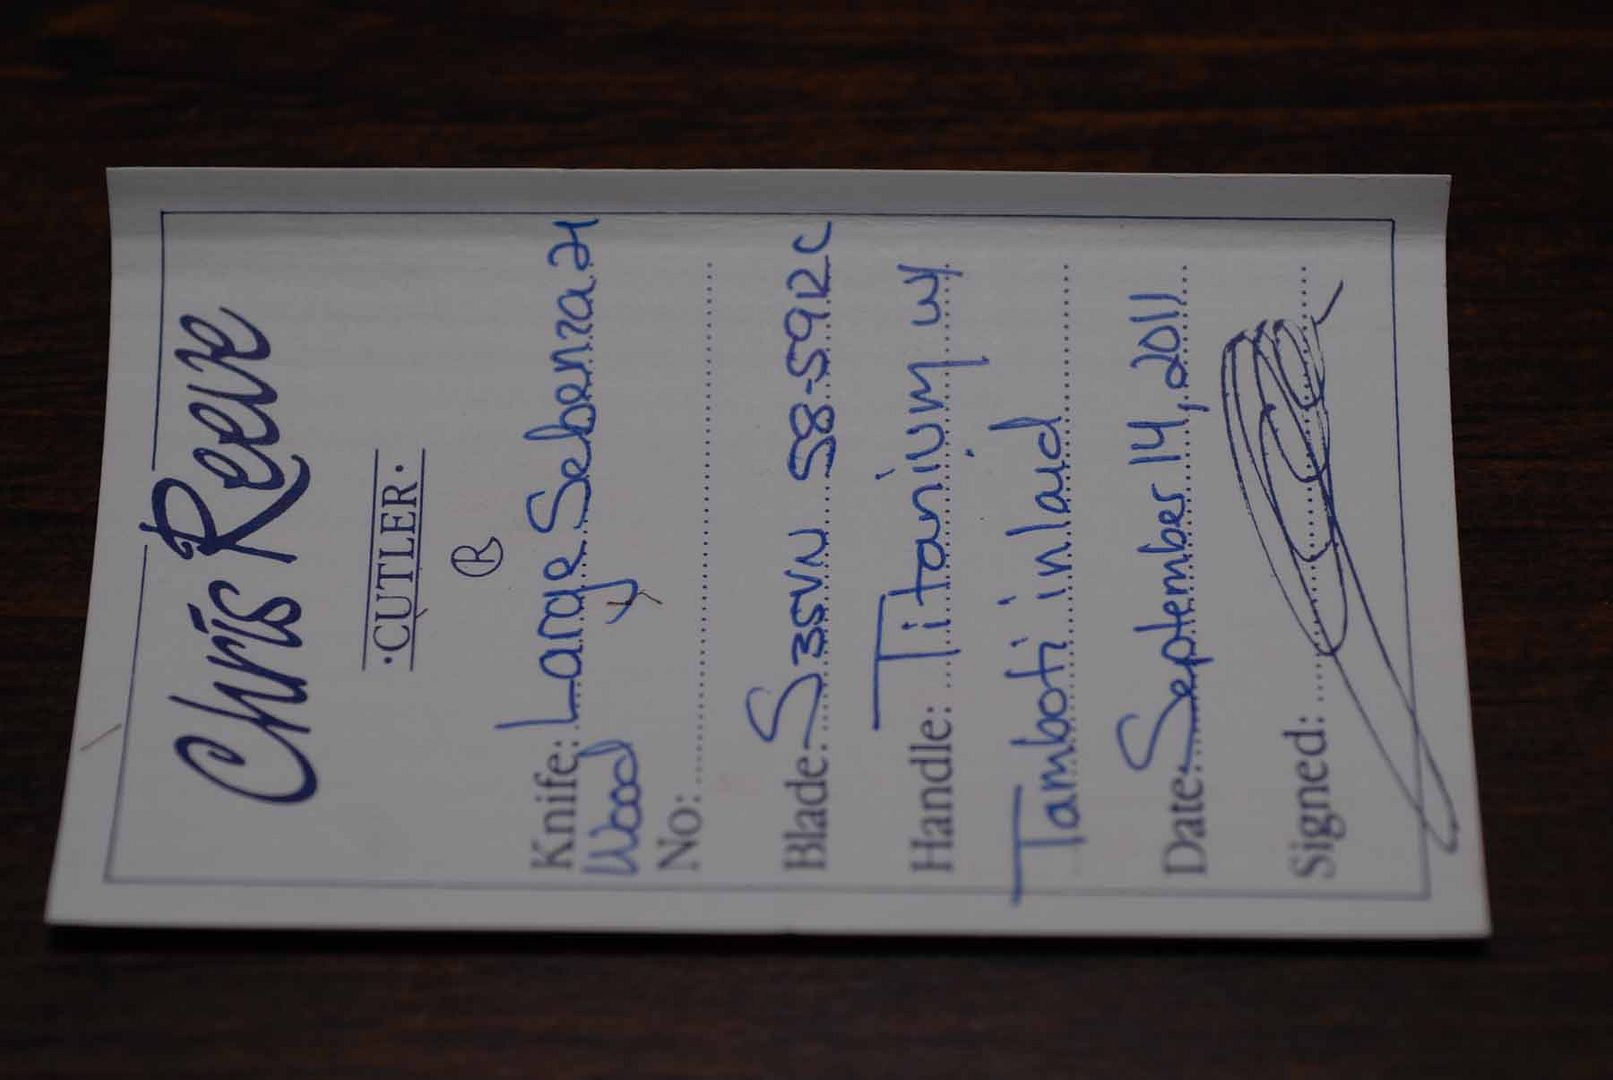 Chris Reeve
·CUTLER·
Knife: Large Sebenza 21
Wood
No:
Blade: S35VN 58-59RC
Handle: Titanium w/
Tamboti inlaid
Date: September 14, 2011
Signed: